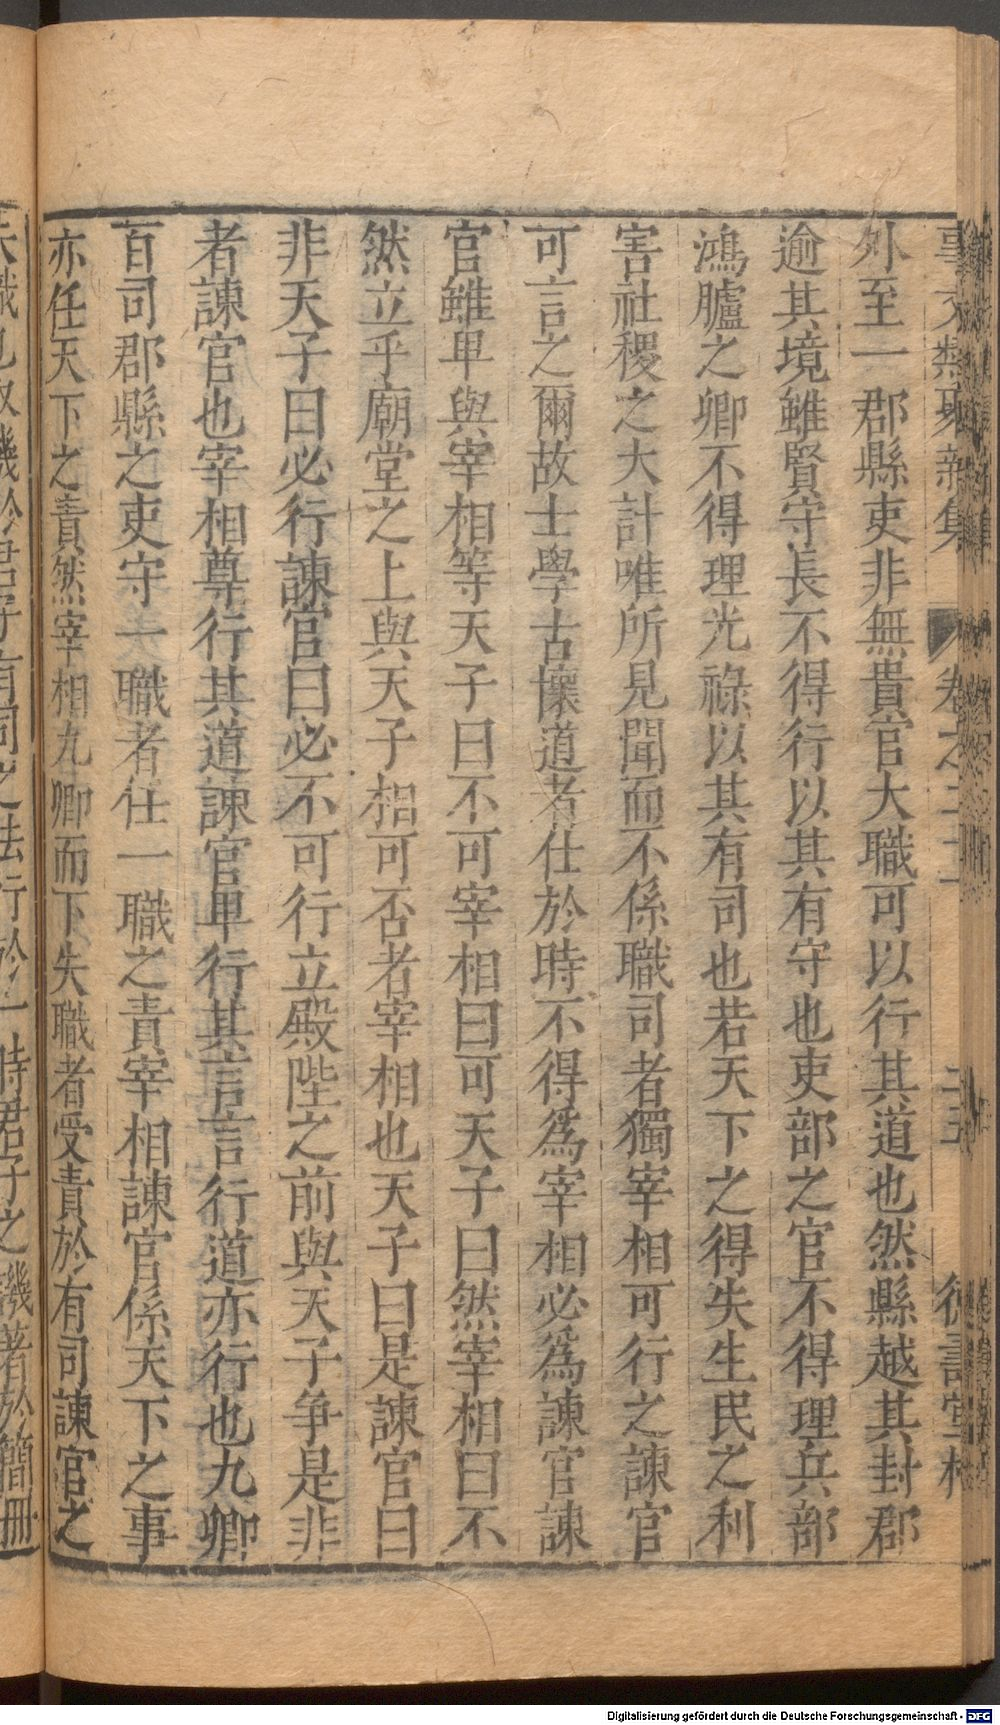 事文類聚新集 卷之二十一 二五 德壽堂梓
外至一郡縣吏非無貴官大職可以行其道也然縣越其封郡
逾其境雖賢守長不得行以其有守也吏部之官不得理兵部
鴻臚之卿不得理光祿以其有司也若天下之得失生民之利
害社稷之大計唯所見聞而不係職司者獨宰相可行之諫官
可言之爾故士學古懷道者仕於時不得爲宰相必爲諫官諫
官雖卑與宰相等天子曰不可宰相曰可天子曰然宰相曰不
然立乎廟堂之上與天子相可否者宰相也天子曰是諫官曰
非天子曰必行諫官曰必不可行立殿陛之前與天子争是非
者諫官也宰相尊行其道諫官卑行其言言行道亦行也九卿
百司郡縣之吏守一職者任一職之責宰相諫官係天下之事
亦任天下之責然宰相九卿而下失職者受責於有司諫官之
失職也取譏於君子有司之法行於一時君子之譏著於簡冊
Digitalisierung gefördert durch die Deutsche Forschungsgemeinschaft - DFG